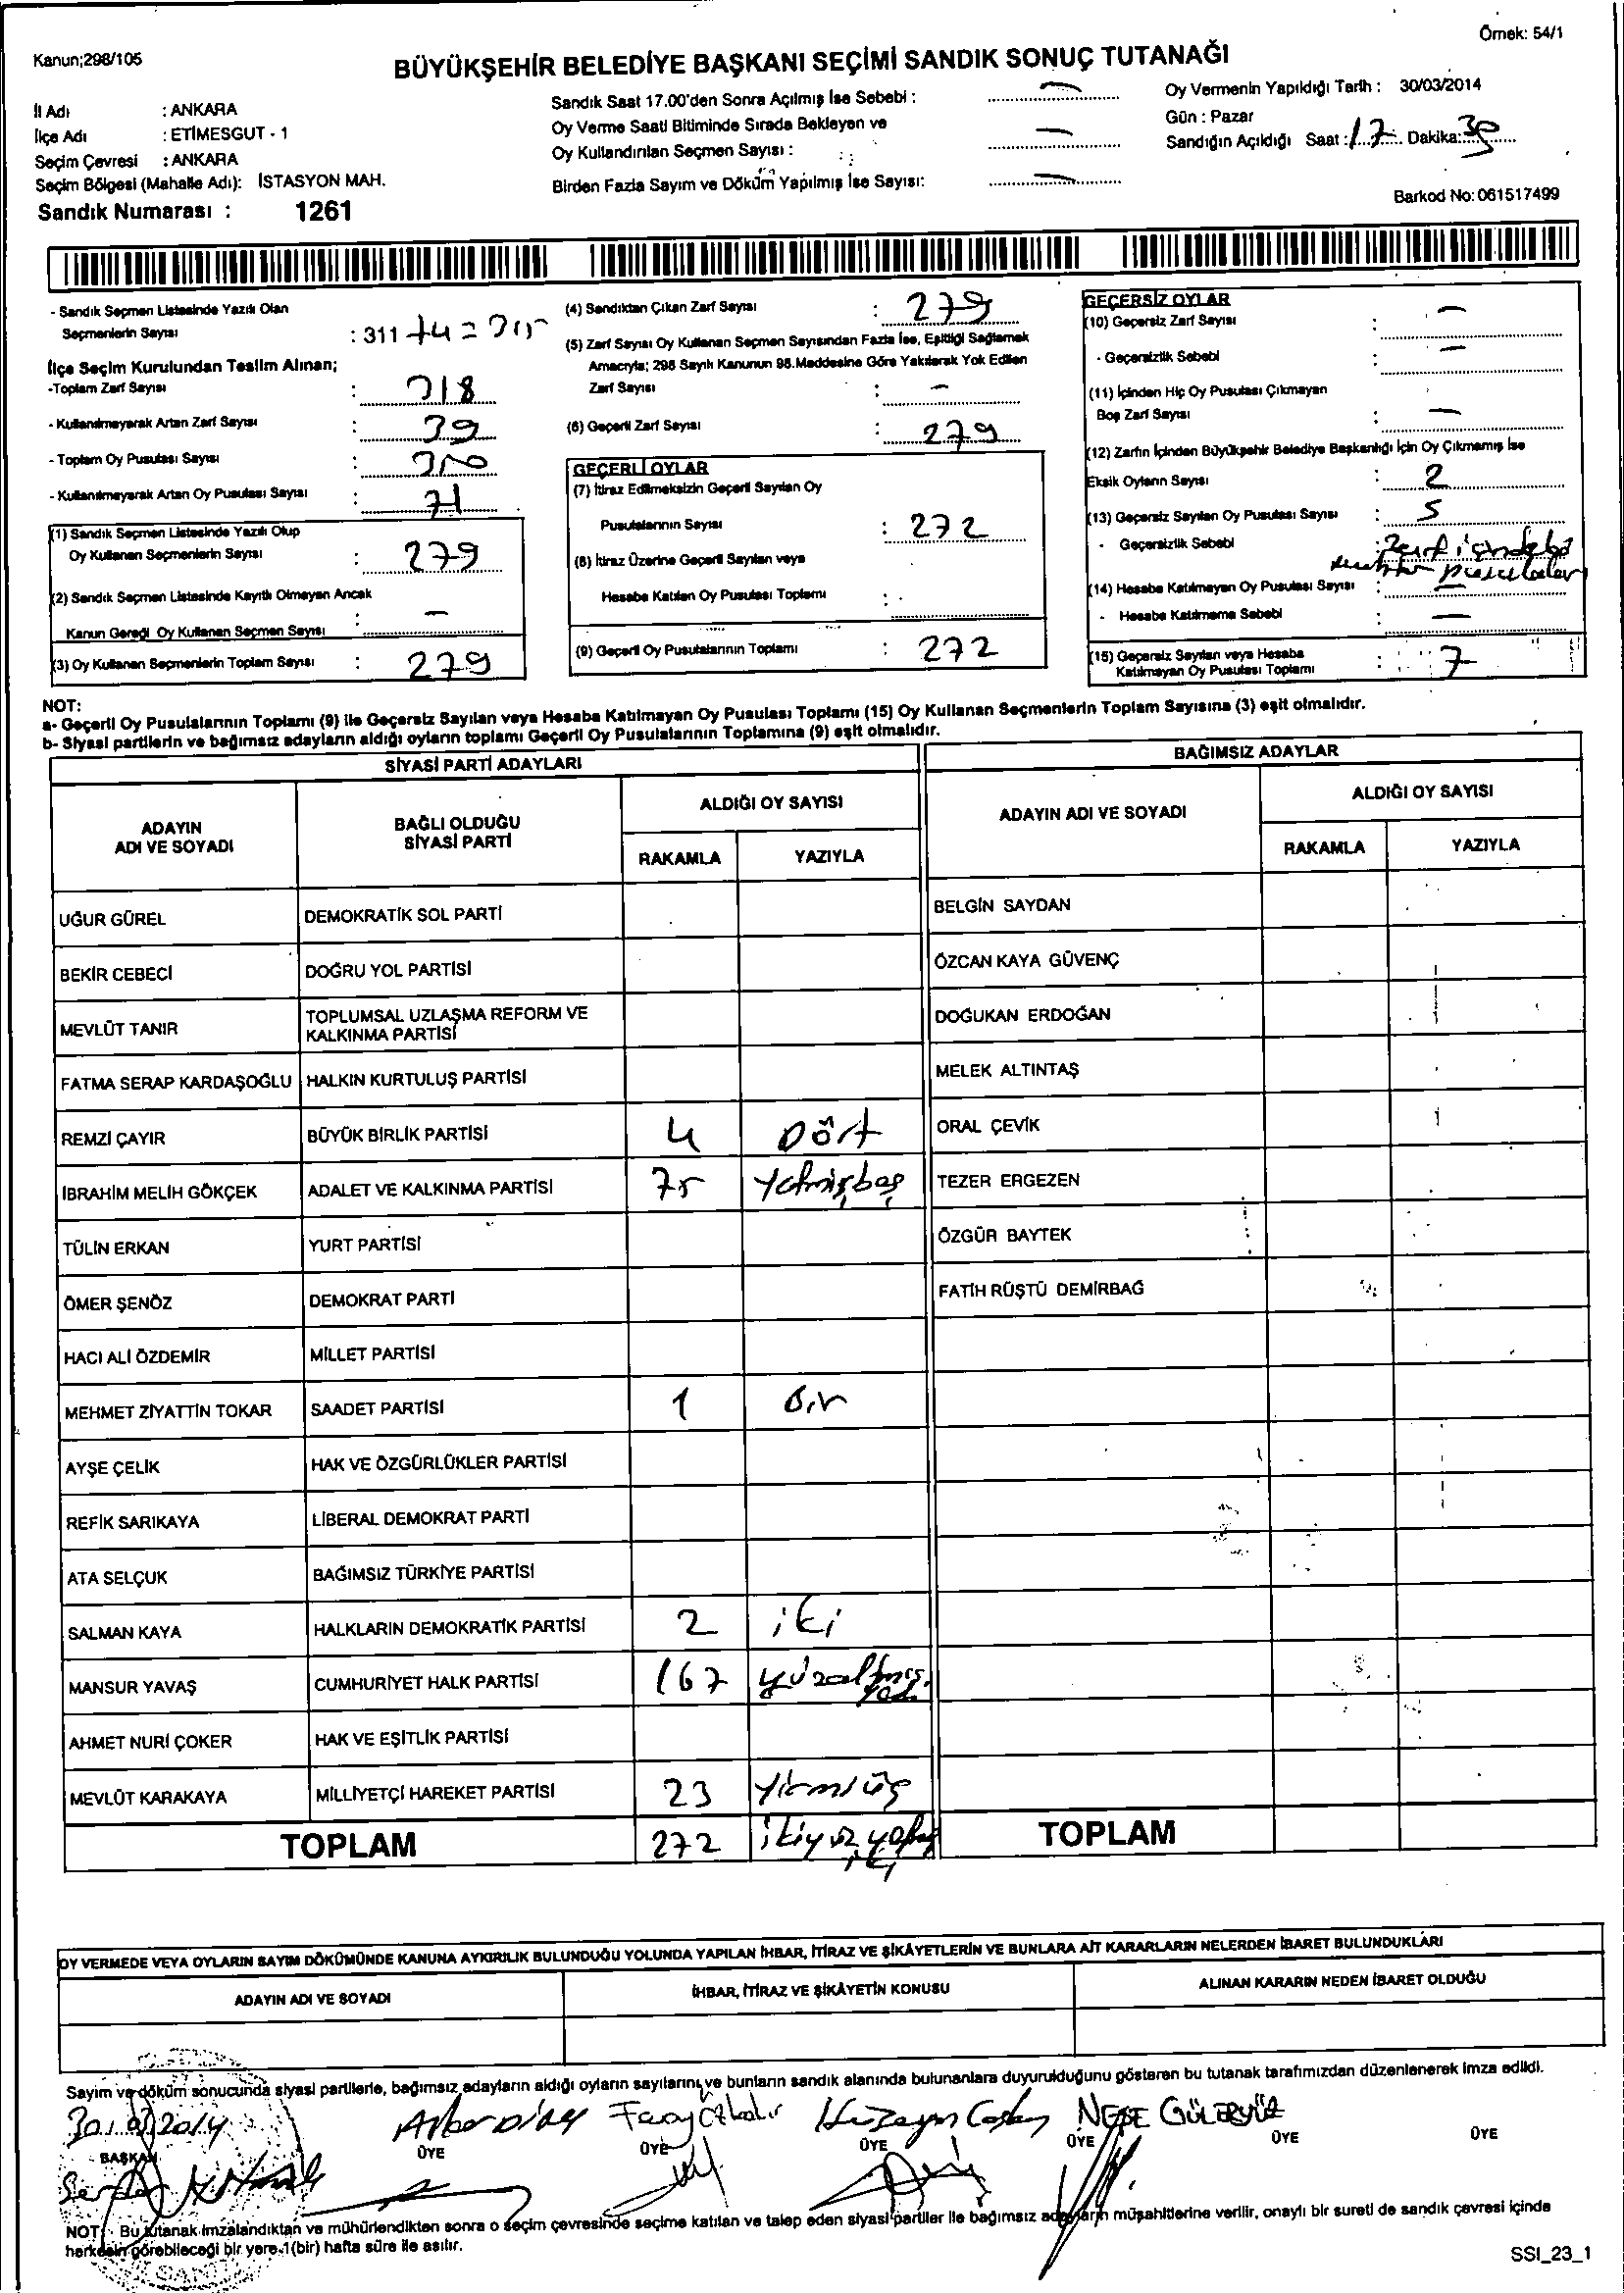 Örnek: 54/1
Kanun;298/105
BÜYÜKŞEHİR BELEDİYE BAŞKANI SEÇİMİ SANDIK SONUÇ TUTANAĞI
İl Adı : ANKARA
İlçe Adı : ETİMESGUT - 1
Seçim Çevresi : ANKARA
Seçim Bölgesi (Mahalle Adı): İSTASYON MAH.
Sandık Numarası : 1261
Sandık Saat 17.00'den Sonra Açılmış İse Sebebi : —
Oy Verme Saati Bitiminde Sırada Bekleyen ve
Oy Kullandırılan Seçmen Sayısı : —
Birden Fazla Sayım ve Döküm Yapılmış İse Sayısı: —
Oy Vermenin Yapıldığı Tarih : 30/03/2014
Gün : Pazar
Sandığın Açıldığı Saat : 17 Dakika: 30
Barkod No: 061517499
- Sandık Seçmen Listesinde Yazılı Olan
Seçmenlerin Sayısı : 311 +4 = 315
İlçe Seçim Kurulundan Teslim Alınan;
-Toplam Zarf Sayısı : 318
- Kullanılmayarak Artan Zarf Sayısı : 39
- Toplam Oy Pusulası Sayısı : 350
- Kullanılmayarak Artan Oy Pusulası Sayısı : 71
(1) Sandık Seçmen Listesinde Yazılı Olup
Oy Kullanan Seçmenlerin Sayısı : 279
(2) Sandık Seçmen Listesinde Kayıtlı Olmayan Ancak
Kanun Gereği Oy Kullanan Seçmen Sayısı : —
(3) Oy Kullanan Seçmenlerin Toplam Sayısı : 279
(4) Sandıktan Çıkan Zarf Sayısı : 279
(5) Zarf Sayısı Oy Kullanan Seçmen Sayısından Fazla İse, Eşitliği Sağlamak
Amacıyla; 298 Sayılı Kanunun 98.Maddesine Göre Yakılarak Yok Edilen
Zarf Sayısı : —
(6) Geçerli Zarf Sayısı : 279
GEÇERLİ OYLAR
(7) İtiraz Edilmeksizin Geçerli Sayılan Oy
Pusulalarının Sayısı : 272
(8) İtiraz Üzerine Geçerli Sayılan veya
Hesaba Katılan Oy Pusulası Toplamı :
(9) Geçerli Oy Pusulalarının Toplamı : 272
GEÇERSİZ OYLAR
(10) Geçersiz Zarf Sayısı : —
- Geçersizlik Sebebi : —
(11) İçinden Hiç Oy Pusulası Çıkmayan
Boş Zarf Sayısı : —
(12) Zarfın İçinden Büyükşehir Belediye Başkanlığı İçin Oy Çıkmamış İse
Eksik Oyların Sayısı : 2
(13) Geçersiz Sayılan Oy Pusulası Sayısı : 5
- Geçersizlik Sebebi : Zarf içinde
pusulaları
(14) Hesaba Katılmayan Oy Pusulası Sayısı : —
- Hesaba Katılmama Sebebi : —
(15) Geçersiz Sayılan veya Hesaba
Katılmayan Oy Pusulası Toplamı : 7
NOT:
a- Geçerli Oy Pusulalarının Toplamı (9) ile Geçersiz Sayılan veya Hesaba Katılmayan Oy Pusulası Toplamı (15) Oy Kullanan Seçmenlerin Toplam Sayısına (3) eşit olmalıdır.
b- Siyasi partilerin ve bağımsız adayların aldığı oyların toplamı Geçerli Oy Pusulalarının Toplamına (9) eşit olmalıdır.
SİYASİ PARTİ ADAYLARI
ADAYIN ADI VE SOYADI BAĞLI OLDUĞU SİYASİ PARTİ ALDIĞI OY SAYISI
RAKAMLA YAZIYLA
UĞUR GÜREL DEMOKRATİK SOL PARTİ
BEKİR CEBECİ DOĞRU YOL PARTİSİ
MEVLÜT TANIR TOPLUMSAL UZLAŞMA REFORM VE
KALKINMA PARTİSİ
FATMA SERAP KARDAŞOĞLU HALKIN KURTULUŞ PARTİSİ
REMZİ ÇAYIR BÜYÜK BİRLİK PARTİSİ 4 Dört
İBRAHİM MELİH GÖKÇEK ADALET VE KALKINMA PARTİSİ 75 Yetmişbeş
TÜLİN ERKAN YURT PARTİSİ
ÖMER ŞENÖZ DEMOKRAT PARTİ
HACI ALİ ÖZDEMİR MİLLET PARTİSİ
MEHMET ZİYATTİN TOKAR SAADET PARTİSİ 1 Bir
AYŞE ÇELİK HAK VE ÖZGÜRLÜKLER PARTİSİ
REFİK SARIKAYA LİBERAL DEMOKRAT PARTİ
ATA SELÇUK BAĞIMSIZ TÜRKİYE PARTİSİ
SALMAN KAYA HALKLARIN DEMOKRATİK PARTİSİ 2 iki
MANSUR YAVAŞ CUMHURİYET HALK PARTİSİ 167 yüzaltmış
yedi
AHMET NURİ ÇOKER HAK VE EŞİTLİK PARTİSİ
MEVLÜT KARAKAYA MİLLİYETÇİ HAREKET PARTİSİ 23 Yirmiüç
TOPLAM 272 ikiyüz yetmiş
iki
BAĞIMSIZ ADAYLAR
ADAYIN ADI VE SOYADI ALDIĞI OY SAYISI
RAKAMLA YAZIYLA
BELGİN SAYDAN
ÖZCAN KAYA GÜVENÇ
DOĞUKAN ERDOĞAN
MELEK ALTINTAŞ
ORAL ÇEVİK
TEZER ERGEZEN
ÖZGÜR BAYTEK
FATİH RÜŞTÜ DEMİRBAĞ
TOPLAM
OY VERMEDE VEYA OYLARIN SAYIM DÖKÜMÜNDE KANUNA AYKIRILIK BULUNDUĞU YOLUNDA YAPILAN İHBAR, İTİRAZ VE ŞİKÂYETLERİN VE BUNLARA AİT KARARLARIN NELERDEN İBARET BULUNDUKLARI
ADAYIN ADI VE SOYADI İHBAR, İTİRAZ VE ŞİKÂYETİN KONUSU ALINAN KARARIN NEDEN İBARET OLDUĞU
Sayım ve döküm sonucunda siyasi partilerle, bağımsız adayların aldığı oyların sayılarını ve bunların sandık alanında bulunanlara duyurulduğunu gösteren bu tutanak tarafımızdan düzenlenerek imza edildi.
30.03.2014 NEŞE GÜLERYÜZ
BAŞKAN ÜYE ÜYE ÜYE ÜYE ÜYE ÜYE
NOT: Bu tutanak imzalandıktan ve mühürlendikten sonra o seçim çevresinde seçime katılan ve talep eden siyasi partiler ile bağımsız adayların müşahitlerine verilir, onaylı bir sureti de sandık çevresi içinde
herkesin görebileceği bir yere 1(bir) hafta süre ile asılır.
SSI_23_1